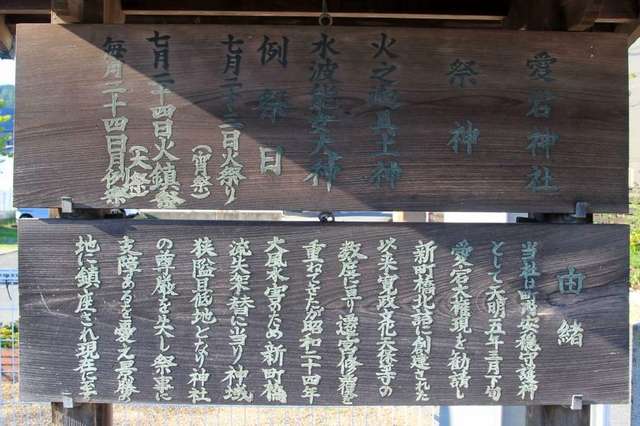 愛宕神社
祭神
火之迦具土神
水波能女大神
例祭日
七月二十三日火祭り
（宵祭）
七月二十四日火鎮祭
（大祭）
毎月二十四日月例祭
由緒
当社は町内安穏守護神
として天明五年三月下旬
愛宕大権現を勧請し
新町橋北詰に創建された
以来寛政文化天保等の
数度に亘り遷宮修復を
重ねてきたが昭和二十四年
大風水害のため新町橋
流失架替に当り神域
狭隘且低地となり神社
の尊厳を失し祭事に
支障あるを憂え喜縁の
地に鎮座され現在に至る